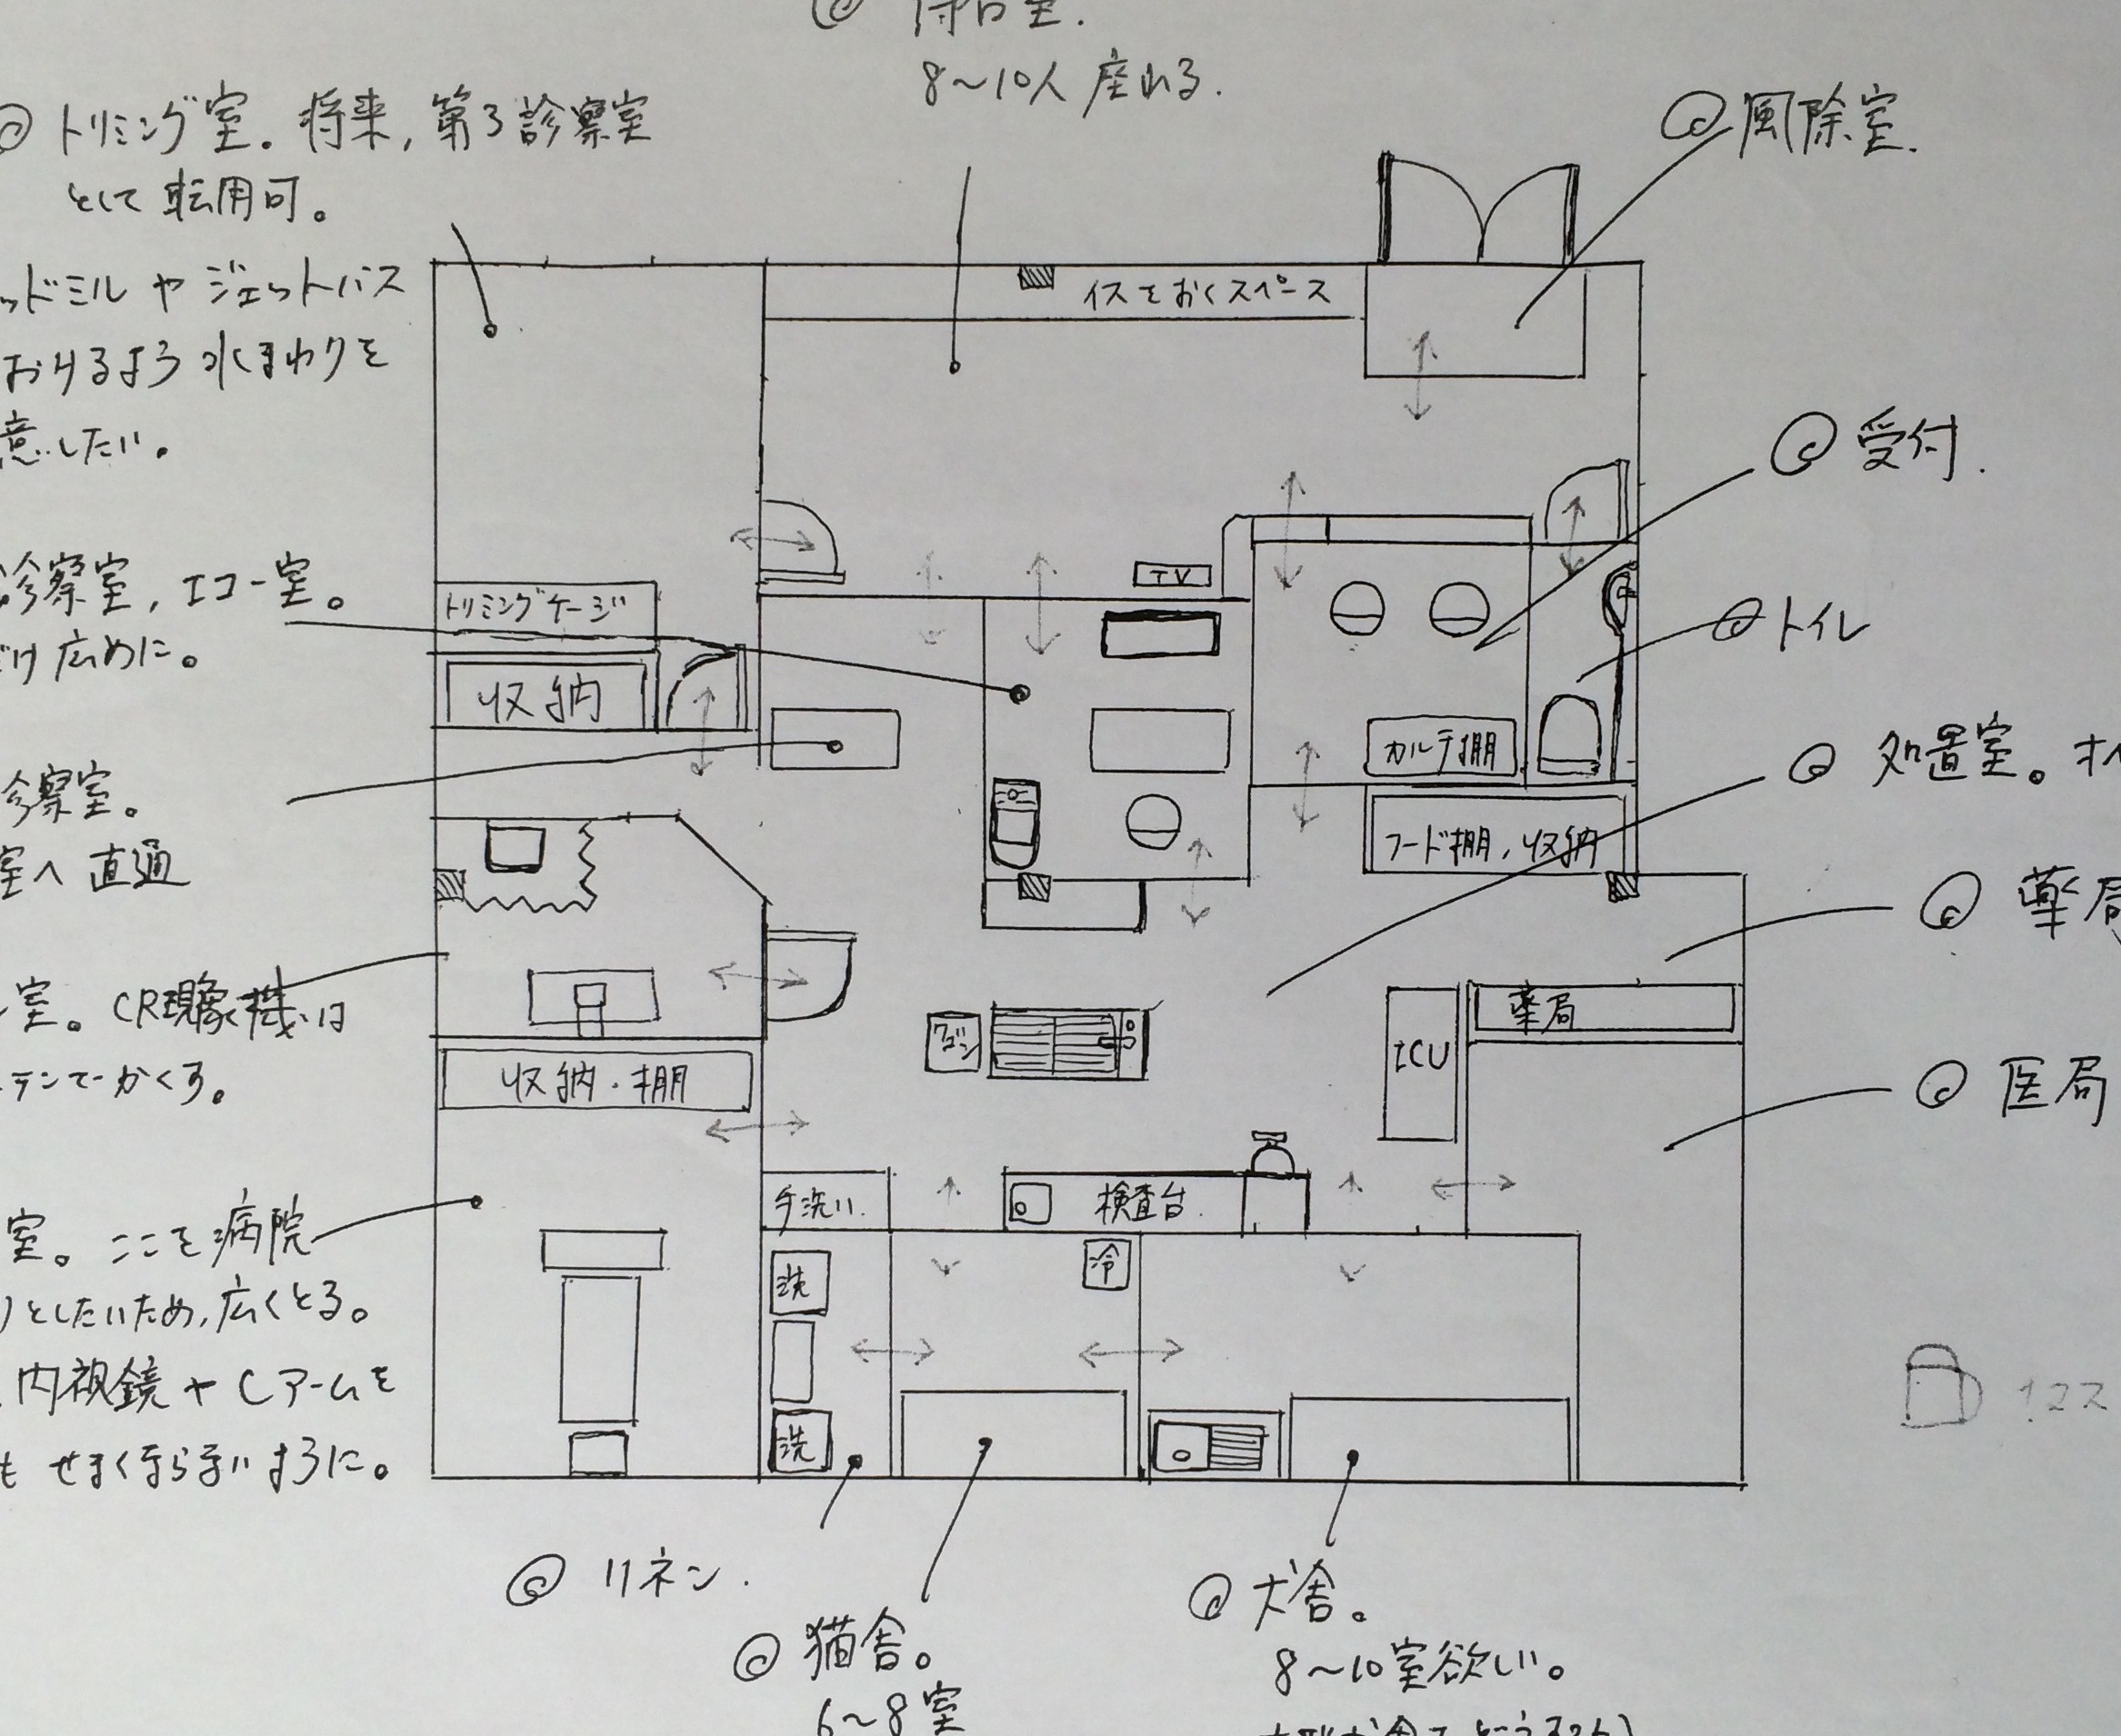 待合室.
8〜10人座れる.
トリミング室。将来,第3診察室
として転用可。
ッドミルやジェットバス
おけるよう水まわりを
意したい。
診察室,エコー室。
だけ広めに。
診察室。
室へ直通
室。CR現象機は
ーテンでかくす。
室。ここを病院
としたいため,広くとる。
内視鏡やCアームを
も せまくならないように。
風除室.
受付.
トイレ
処置室。オペ
薬局
医局
イスをおくスペース
TV
トリミングケージ
収納
カルテ棚
フード棚,収納
ワゴン
ICU
薬局
収納・棚
手洗い
検査台
洗
冷
洗
リネン.
猫舎。
6〜8室
犬舎。
8〜10室欲しい。